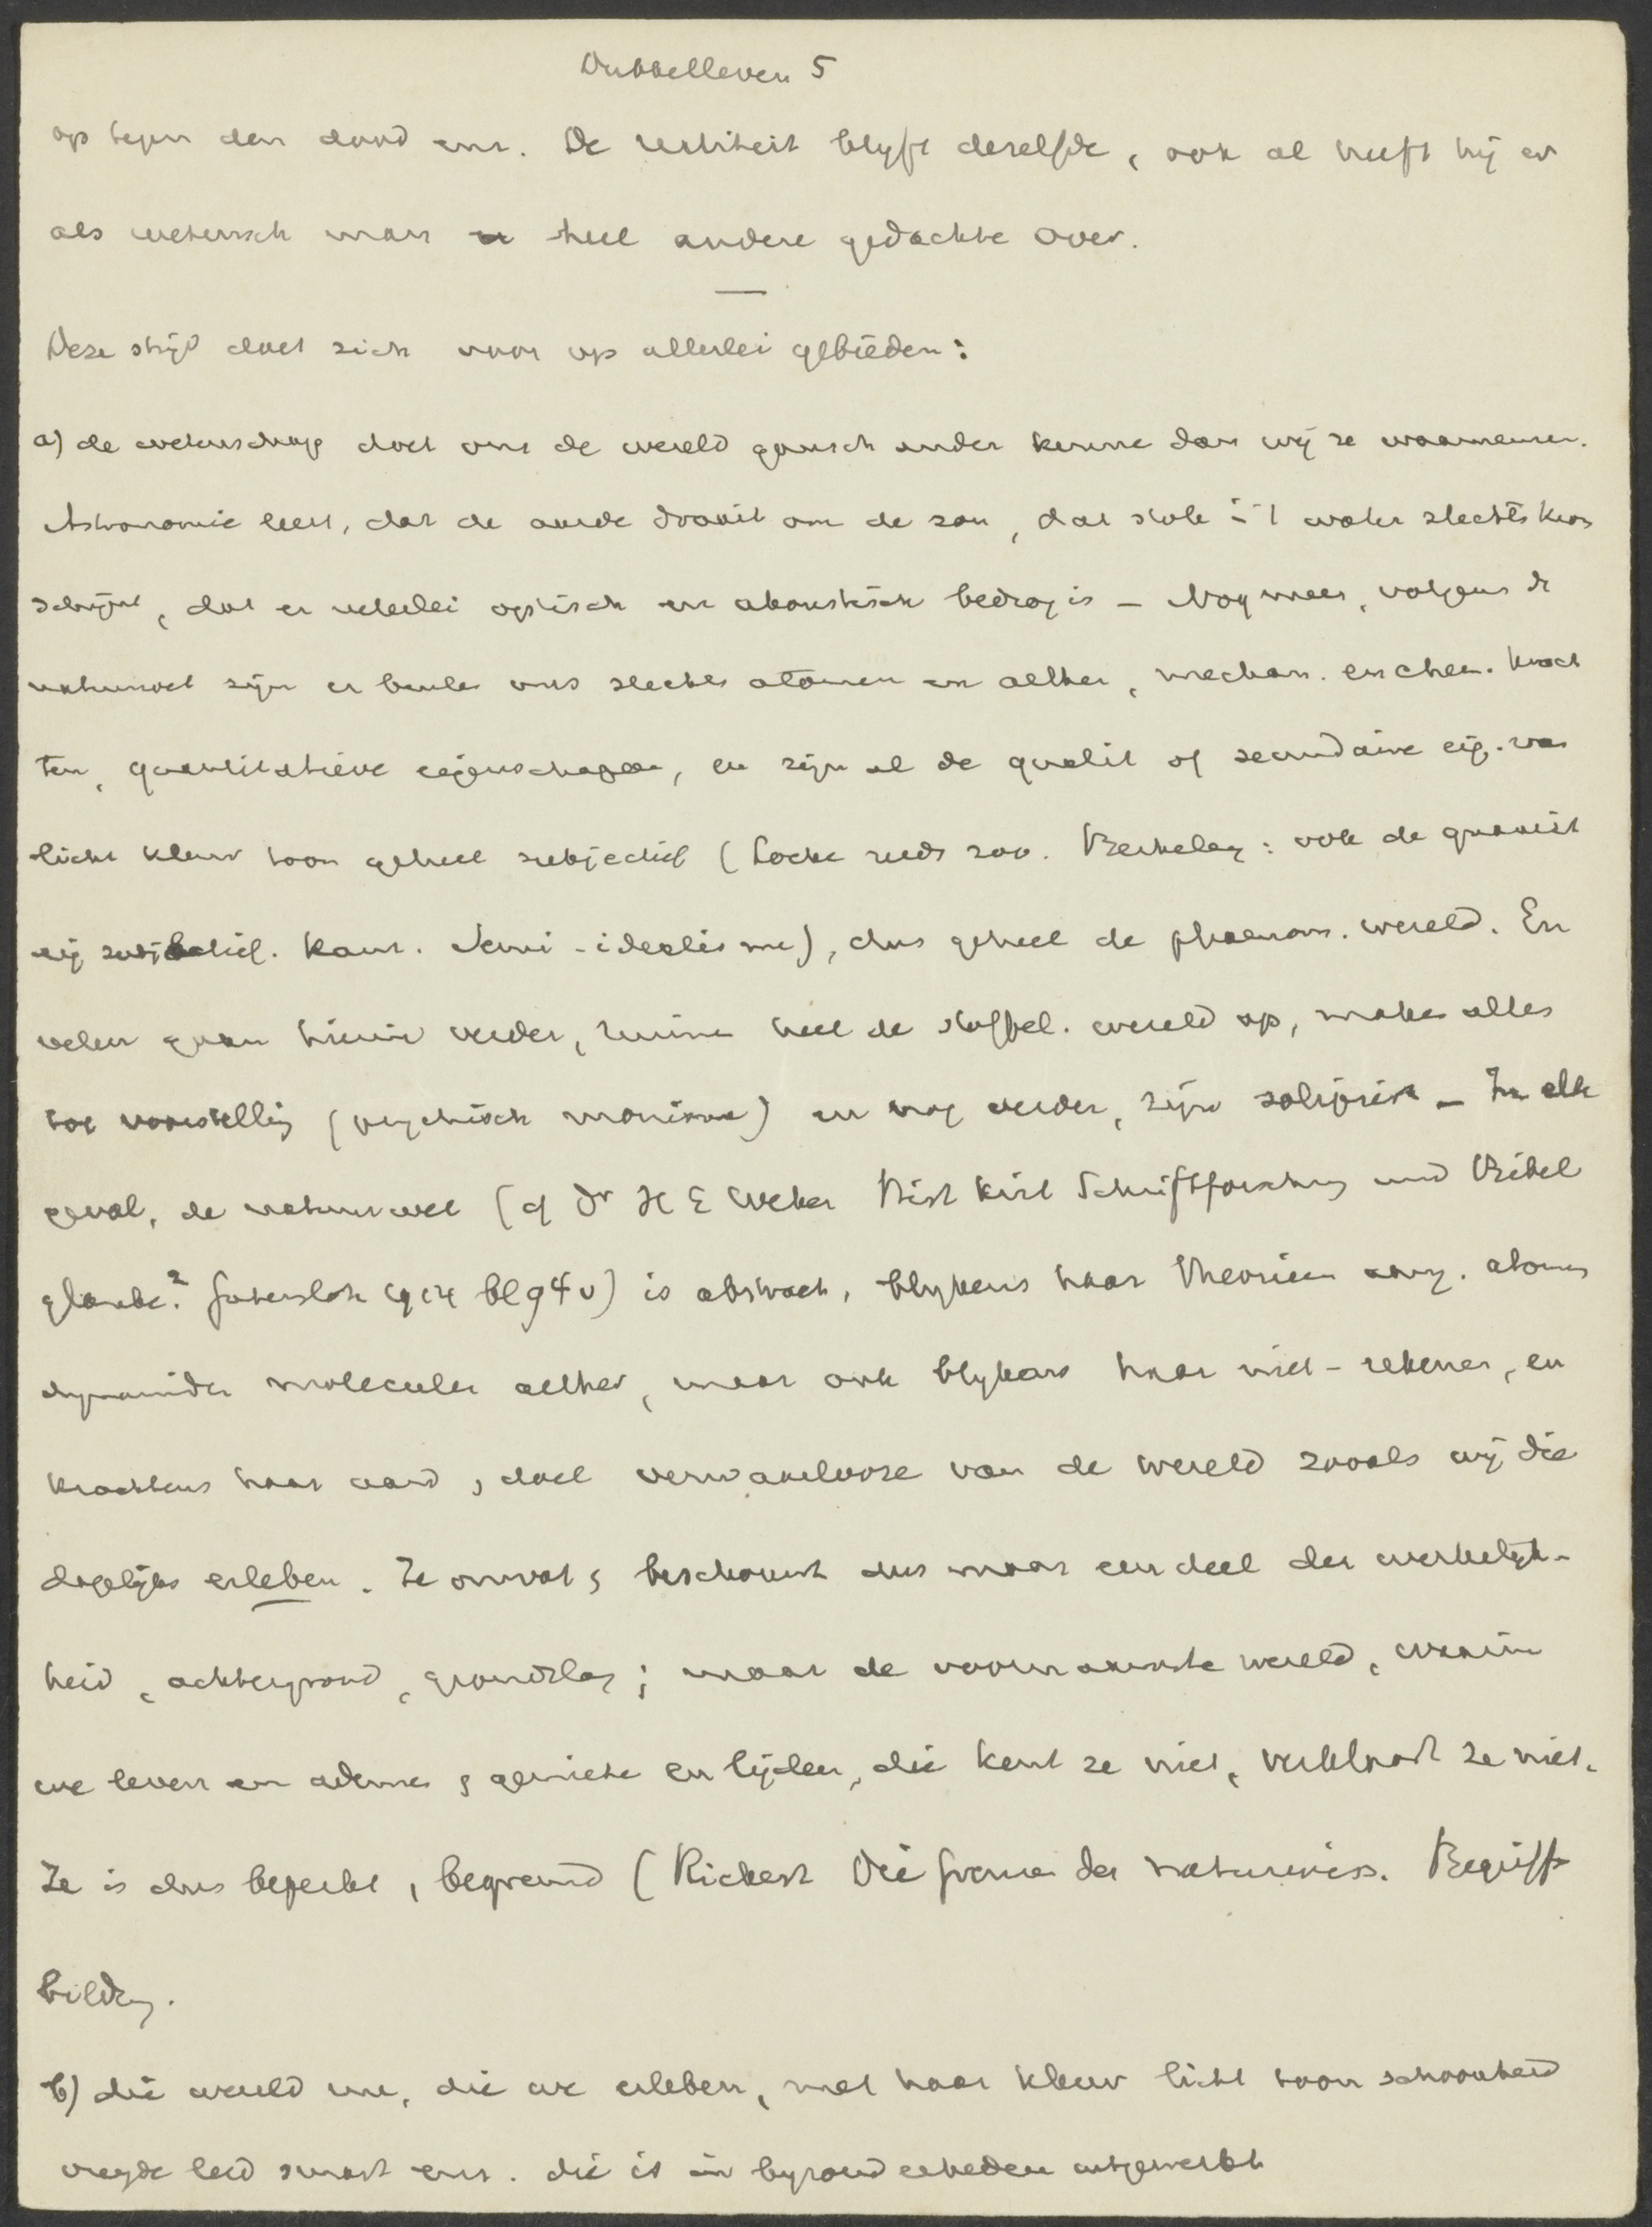 Dubbelleven 5
op tegen den dood enz. De realiteit blyft deselfde, ook al heeft hij er
als wetensch man heel andere gedachte over.
Deze strijd doet zich voor op allerlei gebieden:
a) de wetenschap doet ons de wereld gansch ander kenne dan wij ze waarnemen.
Astronomie leert, dat de aarde draait om de zon, dat stok in 't water slechts krom
schijnt, dat er velerlei optisch en akoustisch bedrog is – Nog meer, volgens de
natuurwet zijn er buiten ons slechts atomen en aether, mechan. en chem. krach
ten, quantitatieve eigenschappen, en zijn al de qualit of secundaire eig. van
licht kleur toon geheel subjectief (Locke reeds zoo. Berkeley: ook de quantit
eig subjectief. Kant. Semi-idealisme), dus geheel de phaenom. wereld. En
velen gaan hierin verder, ruime heel de stoffel. wereld op, maken alles
tot voorstellig (psychisch monisme) en nog verder, zijn solipsist – In elk
geval, de natuurwet (cf Dr H E Weber Hist krit Schriftforschung und Bibel
glaube.² Gutersloh 1914 bl 94 v) is abstract, blykens haar theorieen omg. atomen
dynamiden moleculen aether, maar ook blykens haar niet-rekenen, en
krachtens haar aard, doel verwaarloozen van de wereld zooals wij die
dagelijks erleben. Ze omvat, beschouwt dus maar een deel der werkelijk-
heid, achtergrond, grondslag; maar de voornaamste wereld, waarin
we leven en ademen, geniete en lijden, die kent ze niet, verklaart ze niet.
Ze is dus beperkt, begrensd (Rickert Die Grenzen der naturwiss. Begriffs
bildung.
b) die wereld nu, die we erleben, met haar kleur licht toon schoonheid
vreugde leed smart enz. die is in byzonderheden uitgewerkt